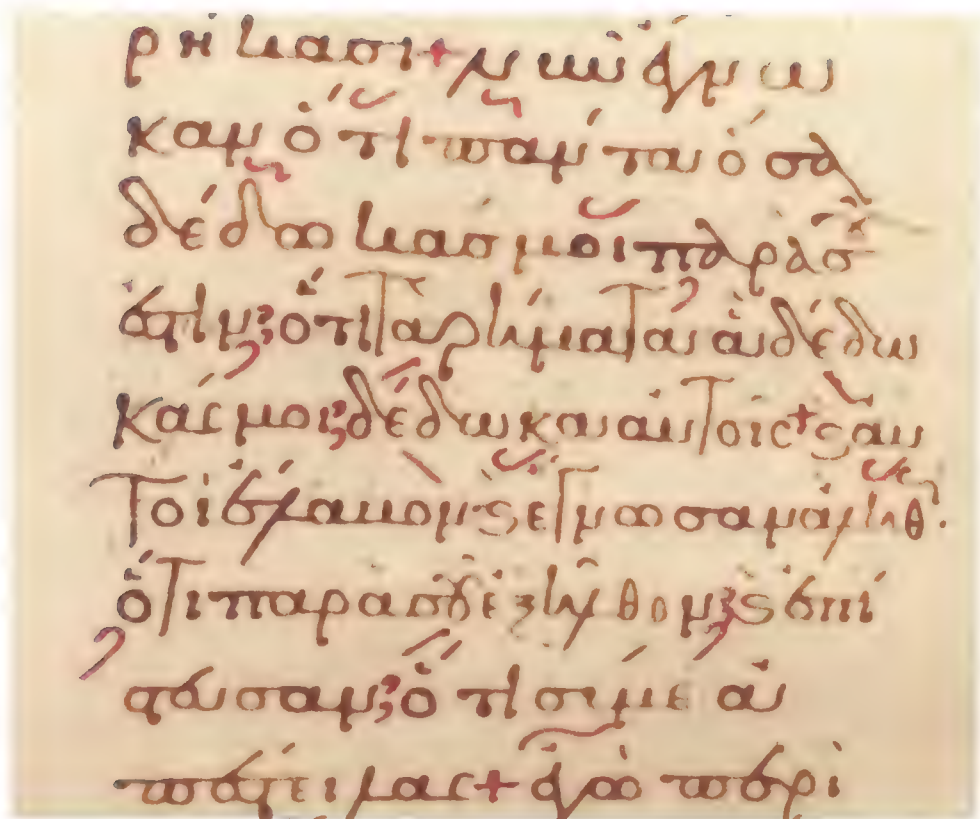 ρήκασι + νῦν ἔγνω
καν ὅτι πάντα ὅσα
δέδωκάς μοι παρὰ σοῦ
ἐστιν; ὅτι τὰ ῥήματα ἃ δέδω
κάς μοι; δέδωκα αὐτοῖς + ϛ αὐ
τοὶ ἔλαβον· ϛ ἔγνωσαν ἀληθ
ὅτι παρὰ σοῦ ἐξῆλθον; ϛ ἐπί
στευσαν; ὅτι σύ με ἀ
πέστειλας + ἐγὼ περὶ